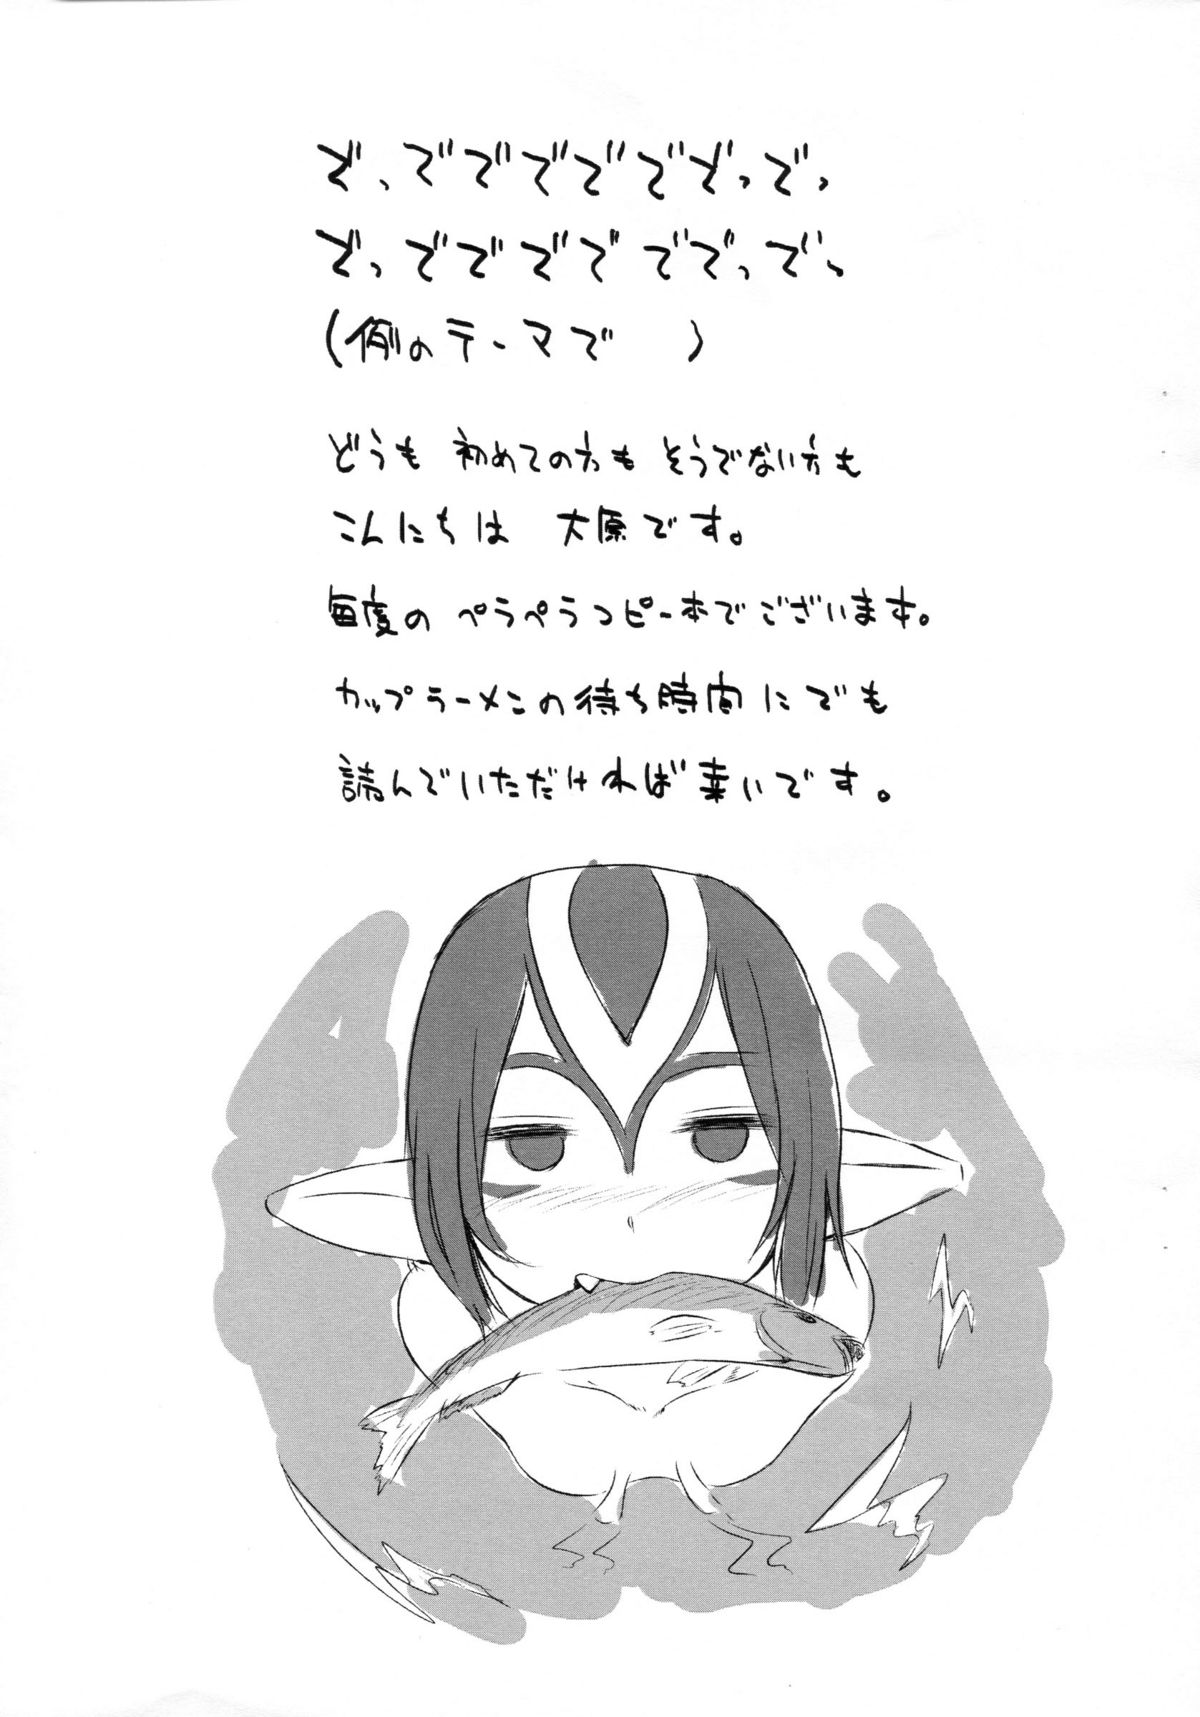 でっででででででっでっ
でっでででで ででっでっ
(例のテーマで　　)
どうも 初めての方も そうでない方も
こんにちは 大原です。
毎度の ペラペラコピー本でございます。
カップラーメンの待ち時間にでも
読んでいただければ幸いです。